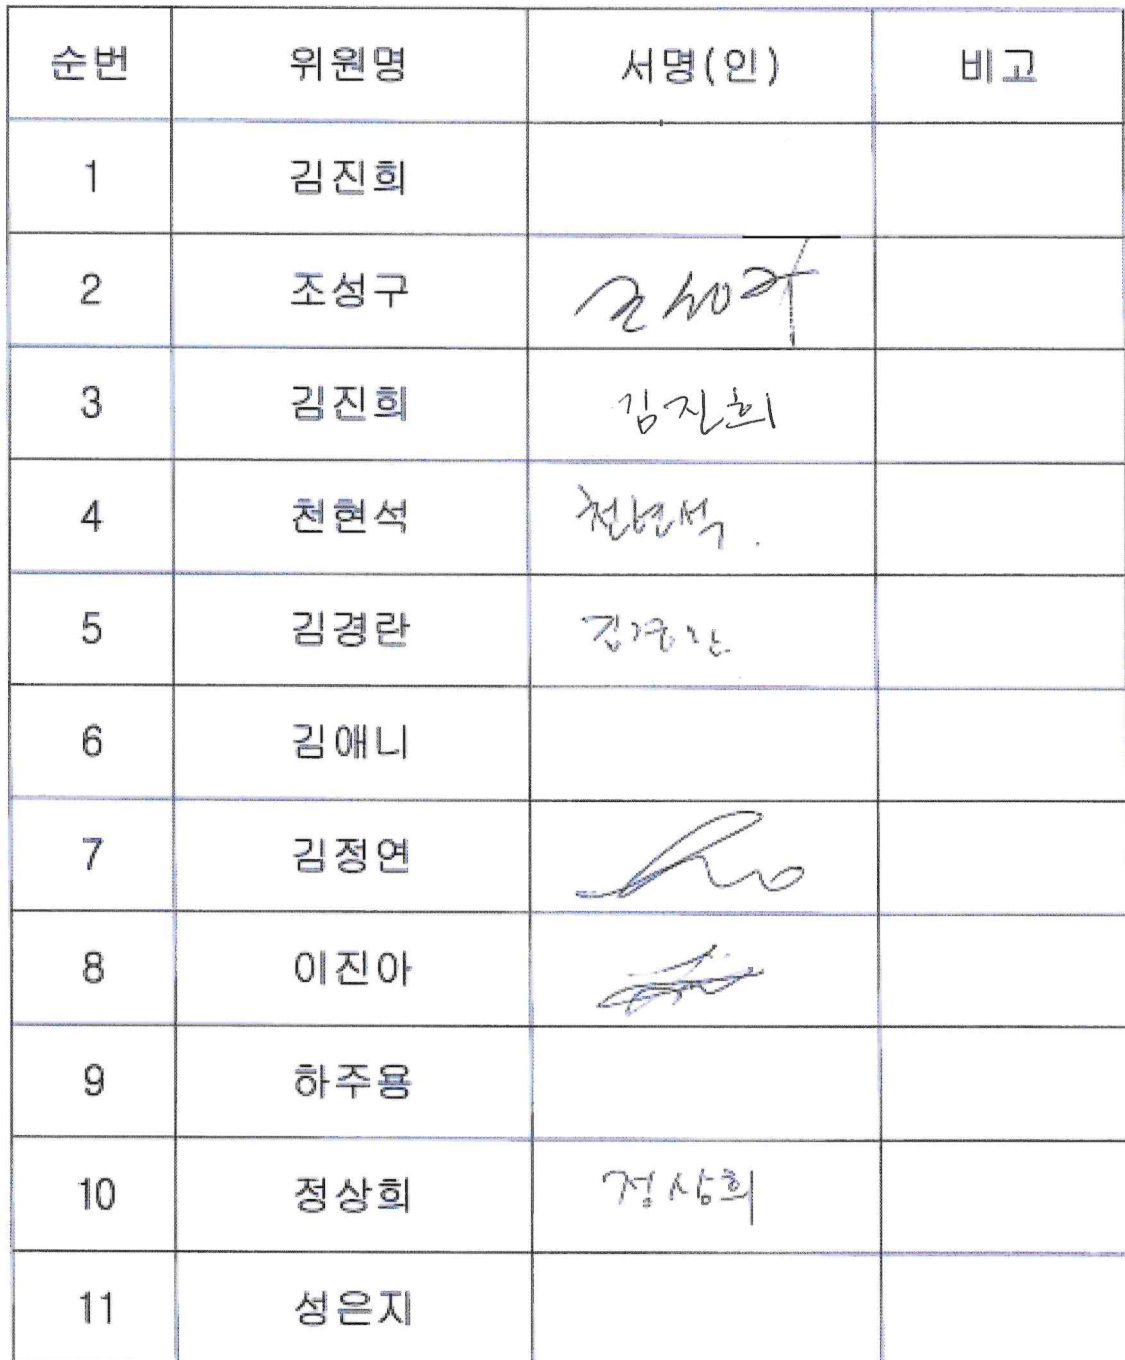 순번 위원명 서명(인) 비고
1 김진희
2 조성구 조성구
3 김진희 김진희
4 천현석 천현석.
5 김경란 김경란
6 김애니
7 김정연
8 이진아
9 하주용
10 정상희 정상희
11 성은지